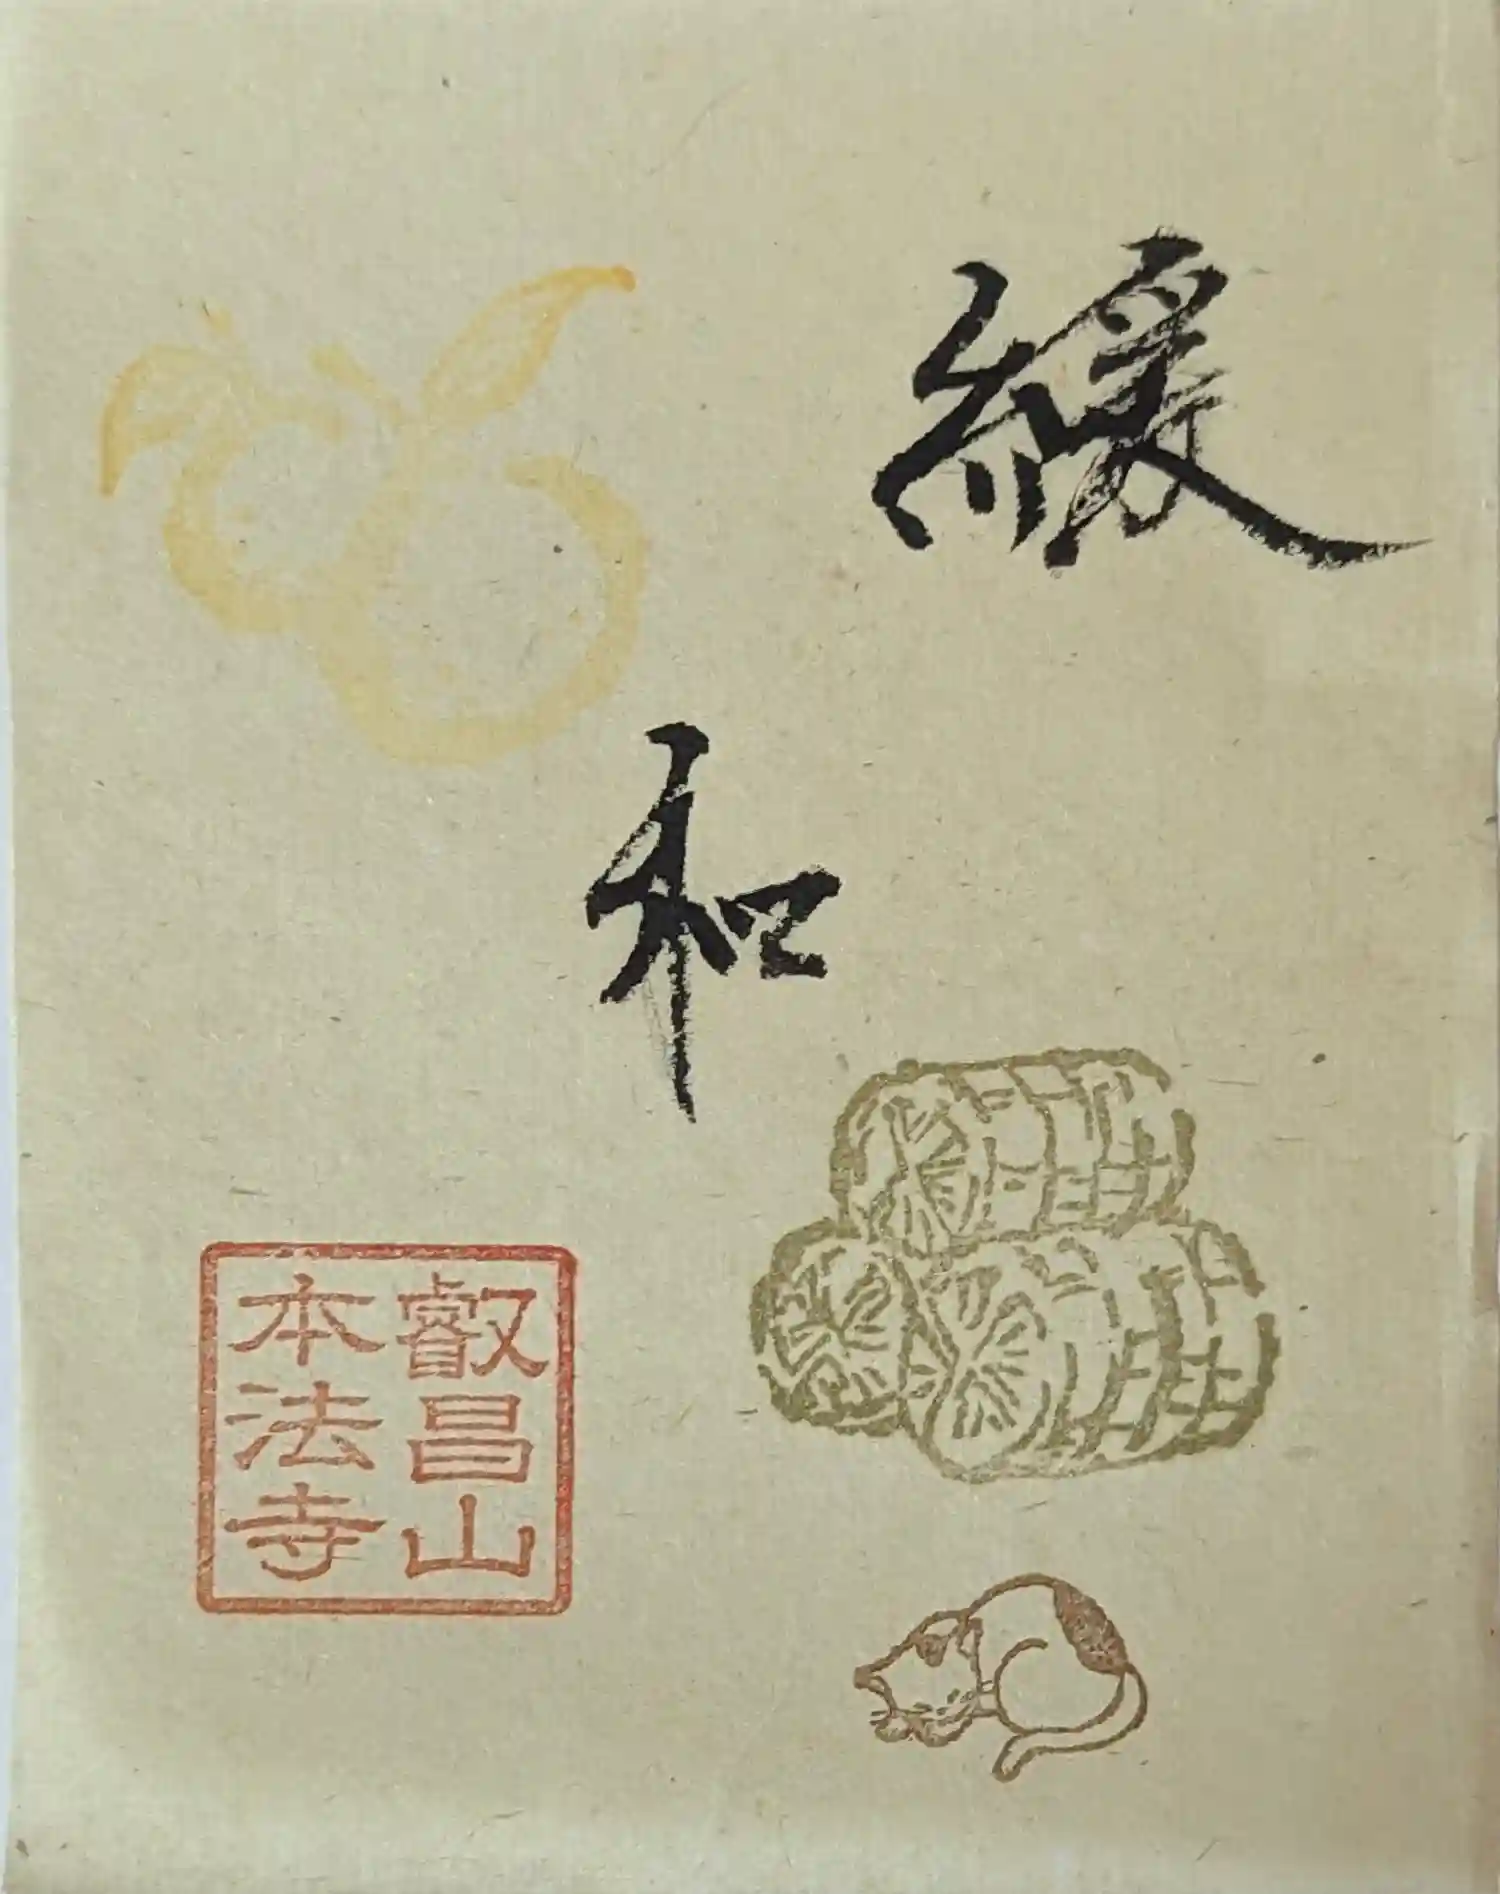 緩
和
叡昌山
本法寺